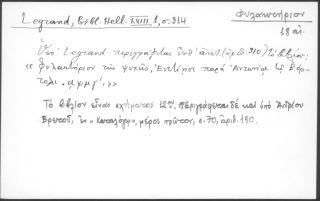 Legrand, Bibl. Hell. XVIII, 1, σ. 314
Φυλακτήριον
18 αἰ.
Ὑπὸ Legrand περιγράφεται ὑπ' ἀριθ. 310 τὸ βιβλίον:
« Φυλακτήριον τῆς ψυχῆς, Ἐνετίῃσι παρὰ Ἀντωνίῳ τῷ Βόρ-
τολι. αψμγʹ. »
Τὸ βιβλίον εἶναι σχήματος 12ου, περιγράφεται δὲ καὶ ὑπὸ Ἀνδρέου
ἐν « Καταλόγῳ», μέρος πρῶτον, σ. 70, ἀριθ. 190.